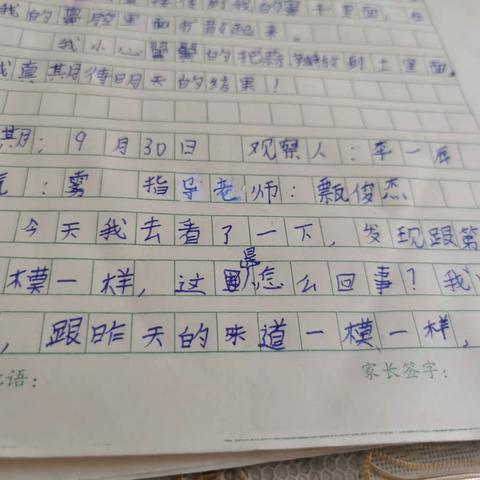 我的鼻腔里面扩散起来。
我小心翼翼的把蒜放到土里面,
我真期待明天的结果!
期:9月30日 观察人:李一
气:雾 指导老师:甄俊杰
今天我去看了一下,发现跟第
模一样,这是怎么回事?我
,跟昨天的味道一模一样,
语: 家长签字: